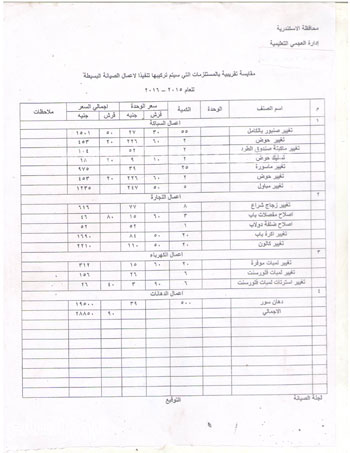 محافظة الاسكندرية
إدارة العجمي التعليمية
مقايسة تقريبية بالمستلزمات التي سيتم تركيبها تنفيذا لاعمال الصيانة البسيطة
للعام ٢٠١٥ – ٢٠١٦
م اسم الصنف الوحدة الكمية سعر الوحدة اجمالي السعر ملاحظات
قرش جنيه قرش جنيه
١ اعمال السباكة
تغيير صنبور بالكامل ٥٥ ٣٠ ٢٧ ٥٠ ١٥٠١
تغيير حوض ٢ ٦٠ ٢٢٦ ٢٠ ٤٥٣
تغيير ماكينة صندوق الطرد ٢ ٥٢ ١٠٤
تسليك حوض ٢ ١٠ ٩ ١٠ ٦٨
تغيير ماسورة ٢٥ ٣٩ ٩٧٥
تغيير حوض ٢ ٦٠ ٢٢٦ ٢٠ ٤٥٣
تغيير مباول ٥ ٥٠ ٢٤٧ ١٢٣٥
٢ اعمال النجارة
تغيير زجاج شراع ٨ ٧٧ ٦١٦
اصلاح مفصلات باب ٣ ٦٠ ١٥ ٨٠ ٤٦
اصلاح ضلفة دولاب ١ ٥٢ ٥٢
تغيير اكرة باب ٢٠ ٥٠ ٨٤ ١٦٩٠
تغيير كالون ٢٠ ٥٠ ١١٠ ٢٢١٠
٣ اعمال الكهرباء
تغيير لمبات موفرة ٢٠ ٦٠ ١٥ ٣١٢
تغيير لمبات فلورسنت ٦ ٢٦ ١٥٦
تغيير استرتات لمبات فلورسنت ٦ ٩٠ ٣ ٤٠ ٢٦
٤ اعمال الدهانات
دهان سور ٥٠٠ ٣٩ ١٩٥٠٠
الاجمالي ٩٠ ٢٨٨٥٠
لجنة الصيانة التوقيع